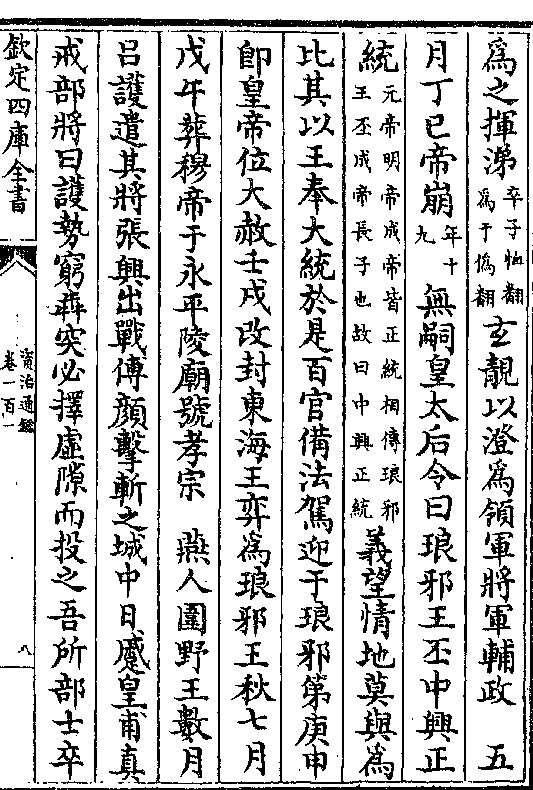 爲之揮涕卒子恤翻爲于僞翻玄靚以澄爲領軍將軍輔政　五
月丁巳帝崩年十九無嗣皇太后令曰琅邪王丕中興正
統元帝明帝成帝皆正統相傳琅邪王丕成帝長子也故曰中興正統義望情地莫與爲
比其以王奉大統於是百官備法駕迎于琅邪第庚申
卽皇帝位大赦壬戌改封東海王弈爲琅邪王秋七月
戊午葬穆帝于永平陵廟號孝宗　燕人圍野王數月
呂護遣其將張興出戰傅顔擊斬之城中日蹙皇甫真
戒部將曰護勢窮奔突必擇虛隙而投之吾所部士卒
欽定四庫全書
資治通鑑
卷一百一
八